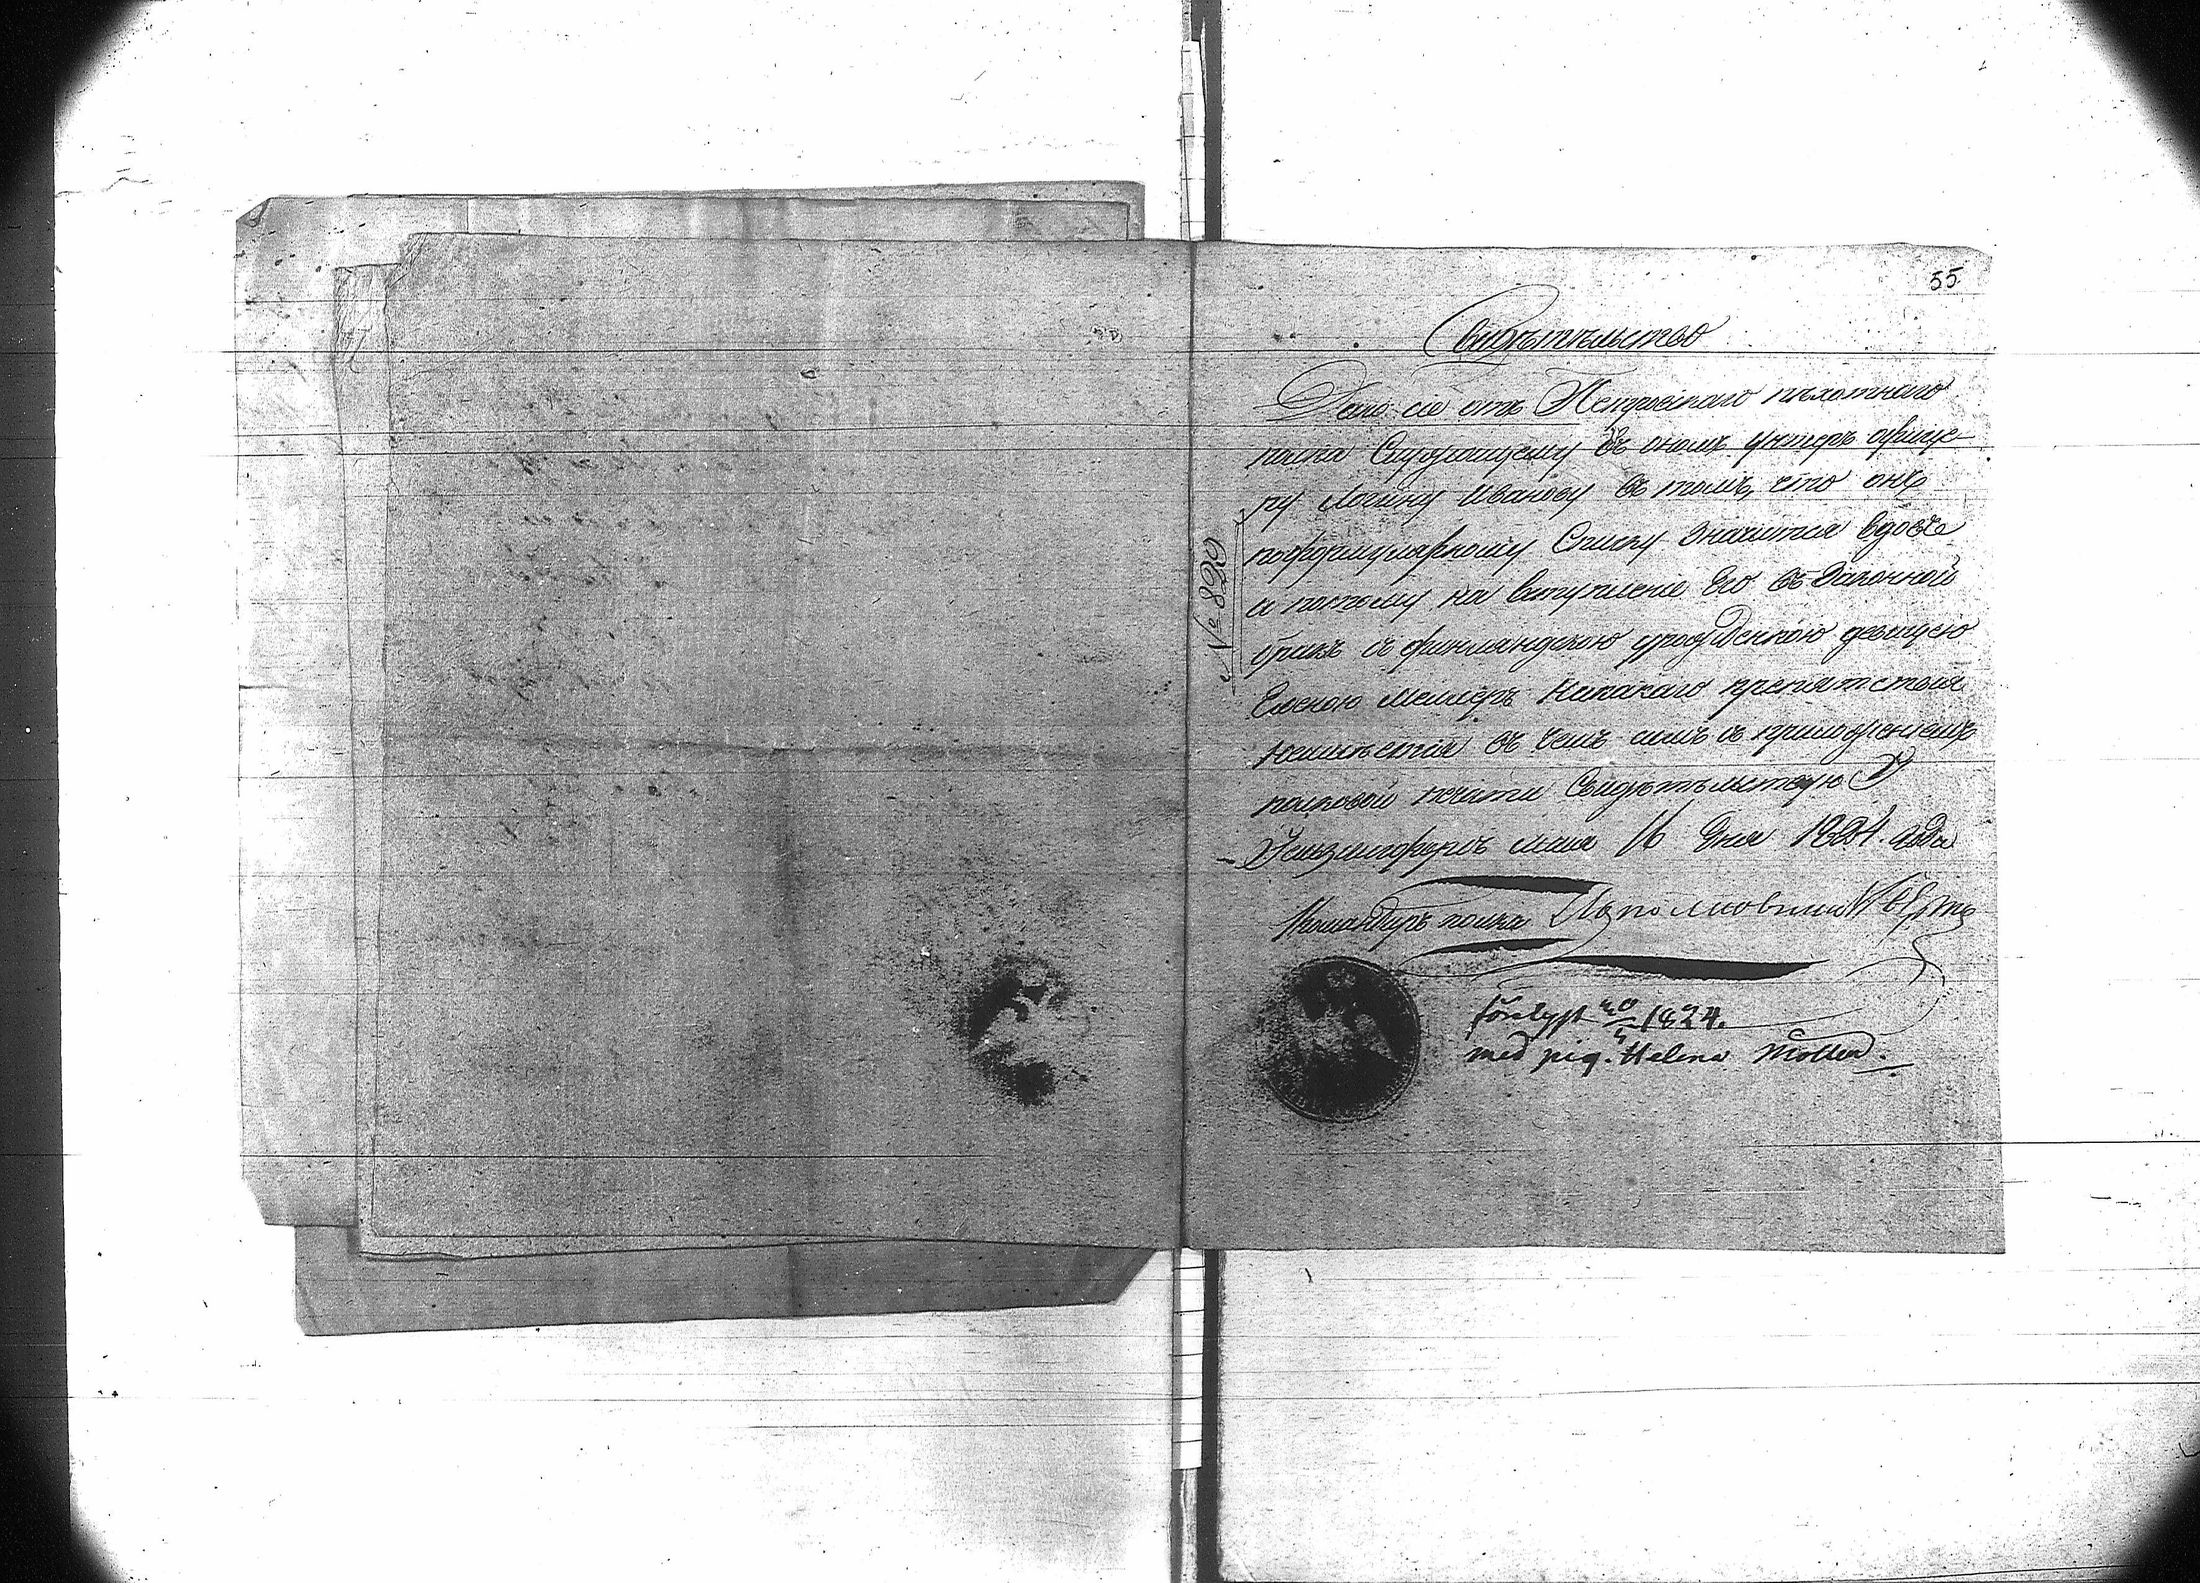 55
Свидѣтельство
Дано сіе отъ Петровскаго пѣхотнаго
полка Служащему въ ономъ унтеръ офице-
ру Логину Иванову въ томъ, что онъ
поформулярному Списку значится вдовъ
и потому на вступление Его въ Законной
бракъ съ финляндскою урожденкою девицею
Еленою Меллеръ Никакаго препятствия
неимѣется въ чемъ симъ съ приложениемъ
полковой печати Свидѣтельствую
Гельзингфорсъ маия 16 дня 1824. года
Командиръ полка Подполковникъ
№ 820
1824.
med pig. Helena Möller.